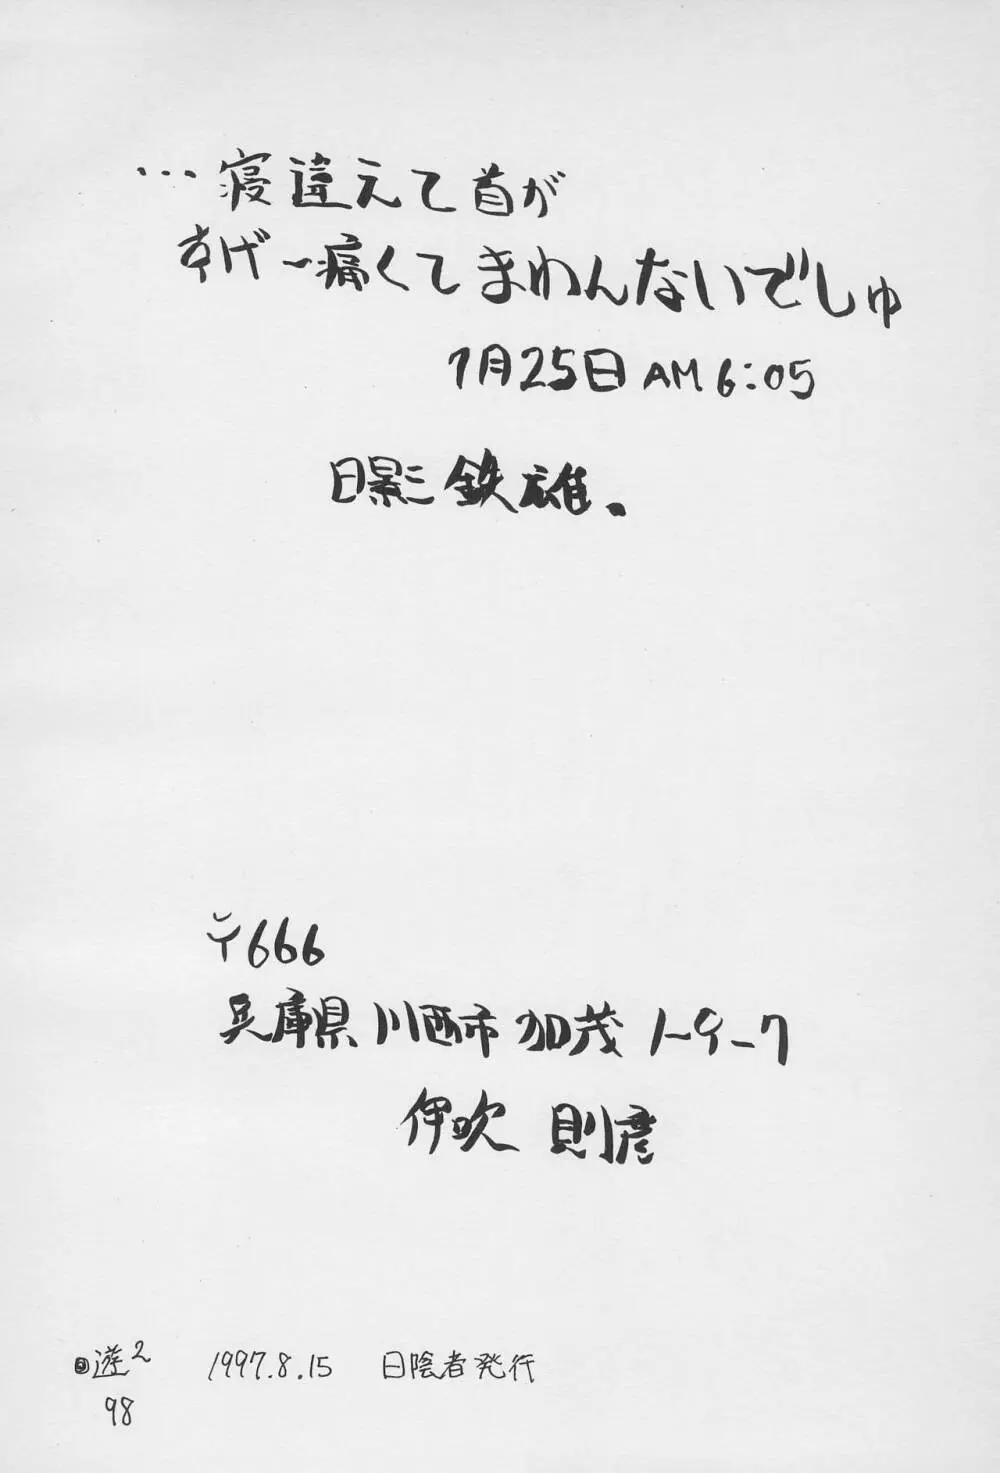 …寝違えて首が
すげ〜痛くてまわんないでしゅ
7月25日AM6:05
日影鉄雄。
〒666
兵庫県川西市加茂1-9-7
伊吹 則彦
遊²
1997.8.15 日陰者発行
98